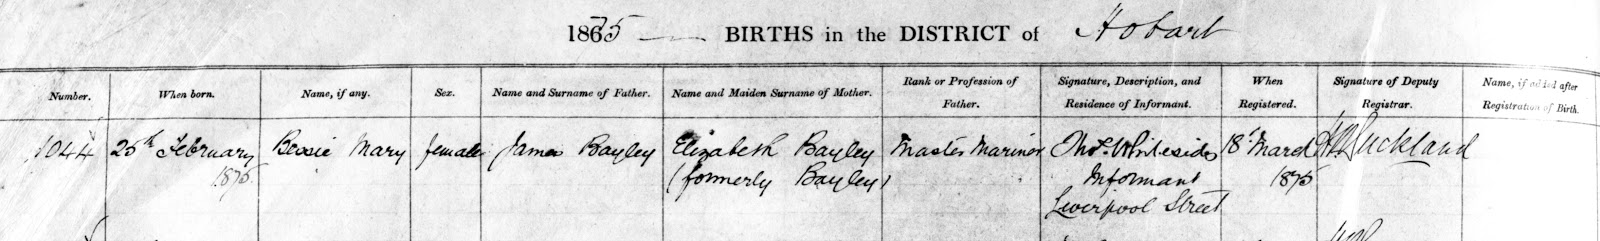 1875 — BIRTHS in the DISTRICT of Hobart
Number.
When born.
Name, if any.
Sex.
Name and Surname of Father.
Name and Maiden Surname of Mother.
Rank or Profession of
Father.
Signature, Description, and
Residence of Informant.
When
Registered.
Signature of Deputy
Registrar.
Name, if added after
Registration of Birth.
1044
25th February
1875
Bessie Mary
female
James Bayley
Elizabeth Bayley
(formerly Bayley)
Master Mariner
Thos. Whitesides
Informant
Liverpool Street
18th March
1875
Buckland